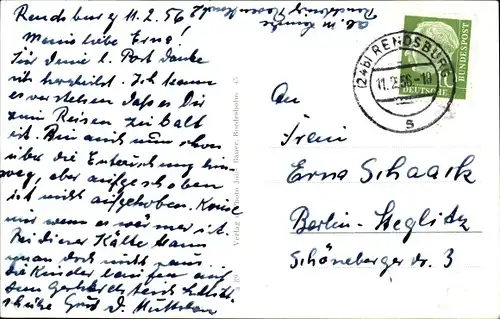 Rendsburg 11.2.56
Meine liebe Erna!
Für Deine l. Post danke
ich herzlichst. Ich kann
es verstehen daß es Dir
zum Reisen zu kalt
ist. Bin auch nun schon
über die Enttäuschung hin
weg, aber aufgeschoben
ist nicht aufgehoben. Komme
mir wenn es wärmer ist.
Bei dieser Kälte kann
man doch nicht raus.
die Kinder laufen auf
dem
Gruß D.
Rendsburg
Verlag Photo Jul. Bauer, Bordesholm 45
(24b) RENDSBURG
11.2.56-18
s
DEUTSCHE
BUNDESPOST
An
Frau
Erna Schaack
Berlin-Steglitz
Schöneberger str. 3